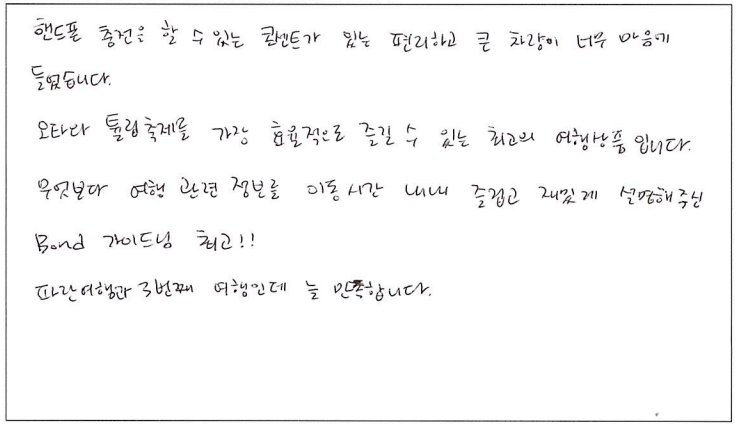 핸드폰 충전은 할 수 있는 콘센트가 있는 편리하고 큰 차량이 너무 마음에
들었습니다.
오타와 튤립축제를 가장 효율적으로 즐길 수 있는 최고의 여행상품입니다.
무엇보다 여행 관련 정보를 이동시간 내내 즐겁고 재밌게 설명해주신
Bond 가이드님 최고!!
파란여행과 3번째 여행인데 늘 만족합니다.